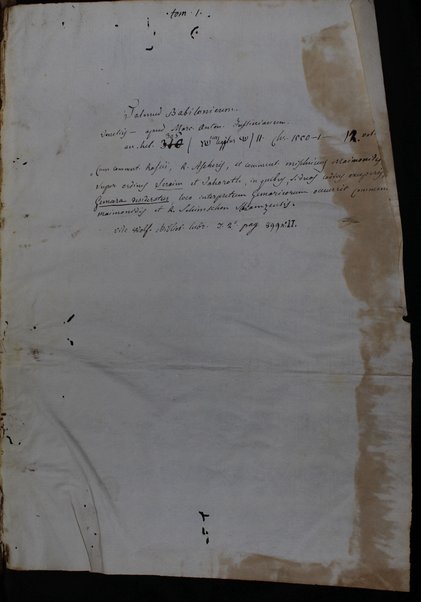 tom. 1.
Talmud Babilonicum.
Venetiis — apud Marc. Anton. Justinianum.
an. heb. 310 / Chr. 1550-1 — 12 vol.
Cum comment. Rascii, R. Ascheris, et comment. mischnicus Maimonidis
super ordines Seraim et Tahoroth, in quibus, si duos codices exceperis,
Gemara desideratur loco interpretum Gemaricorum occurrit comment.
Maimonidis et R. Schimschon
vide Wolf. Biblioth. hebr. T. 2. pag. 899